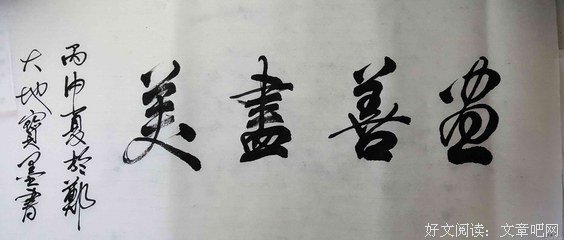 盡善盡美
丙申夏於鄭
大地寶墨書
好文阅读：文章吧网